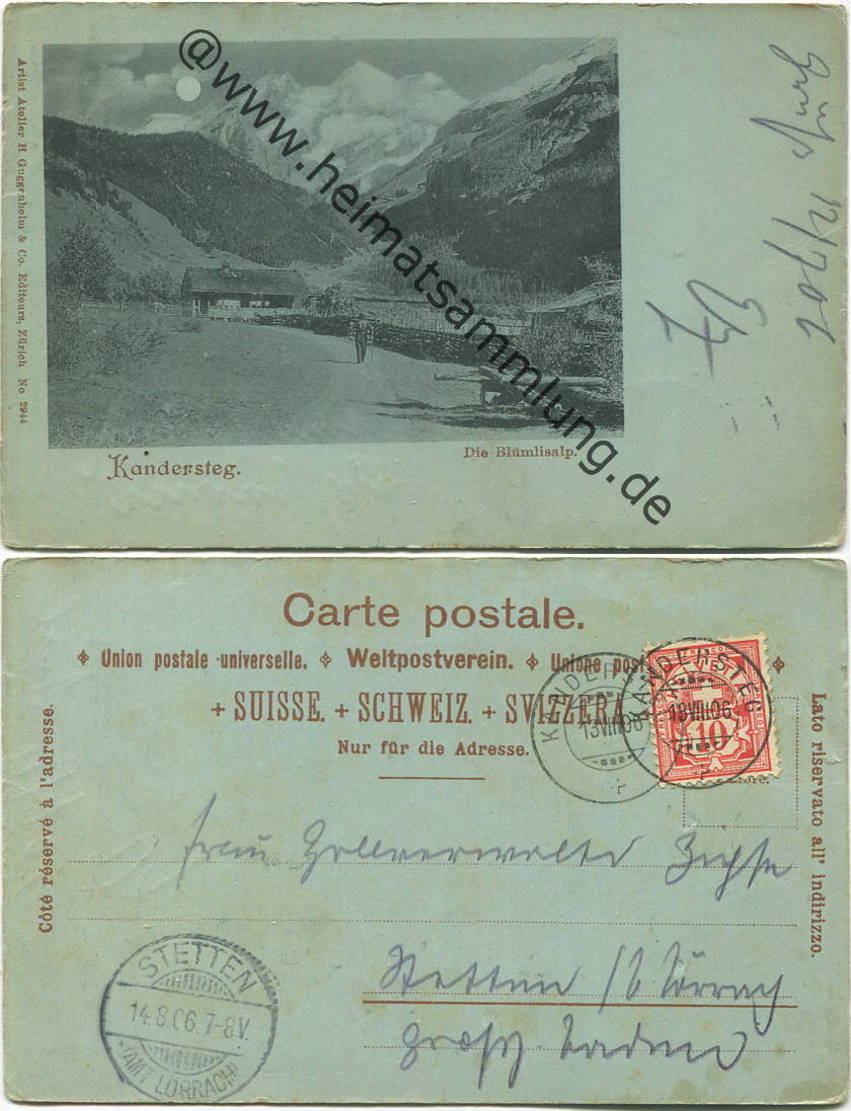 Artist Atelier H. Guggenheim & Co. Editeurs, Zürich No 2944
@www.heimatsammlung.de
Kandersteg.
Die Blümlisalp.
Carte postale.
Union postale universelle. Weltpostverein. Unione post
+ SUISSE. + SCHWEIZ. + SVIZZERA
Nur für die Adresse.
Côté réservé à l'adresse.
Lato riservato all' indirizzo.
KANDERSTEG
13.VIII.06
KANDERSTEG
13.VIII.06
10
Frau Zollverwalter
Stetten / b Lörrach
Großh. Baden
STETTEN
14.8.06.7-8V.
(AMT LÖRRACH)